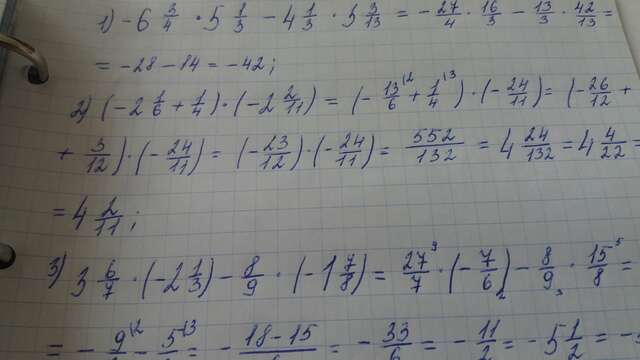 1) -6 3/4 · 5 1/3 - 4 1/3 · 3 3/13 = - 27/4 · 16/3 - 13/3 · 42/13 =
= -28 - 84 = -42;
2) (-2 1/6 + 1/4) · (-2 2/11) = (- 13/6 \2 + 1/4 \3) · (- 24/11) = (- 26/12 +
+ 3/12) · (- 24/11) = (- 23/12) · (- 24/11) = 552/132 = 4 24/132 = 4 4/22 =
= 4 2/11;
3) 3 6/7 · (-2 1/3) - 8/9 · (-1 7/8) = 27/7 · (- 7/6) - 8/9 · 15/8 =
= - 9/ \2 - 5/ \3 = - 18-15/ = - 33/6 = - 11/2 = -5 1/2 =